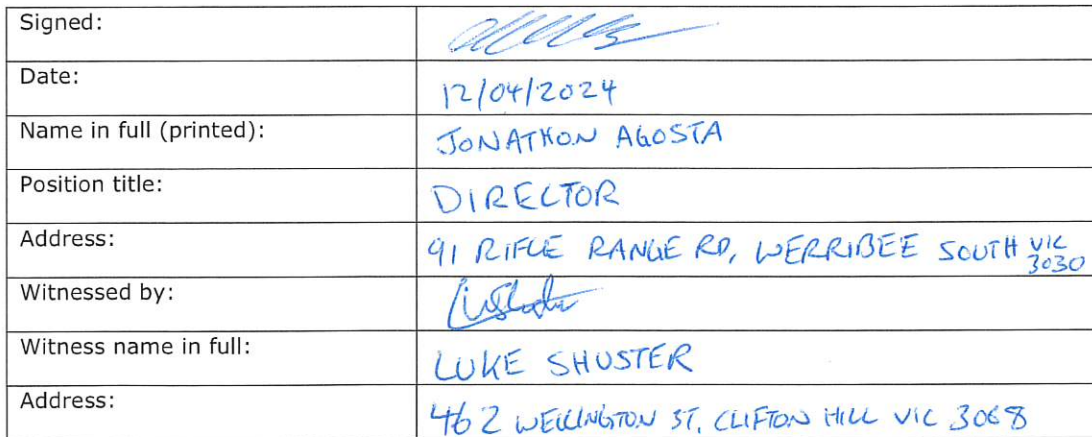 Signed:
Date: 12/04/2024
Name in full (printed): JONATHON AGOSTA
Position title: DIRECTOR
Address: 91 RIFLE RANGE RD, WERRIBEE SOUTH VIC 3030
Witnessed by:
Witness name in full: LUKE SHUSTER
Address: 462 WELLINGTON ST, CLIFTON HILL VIC 3068